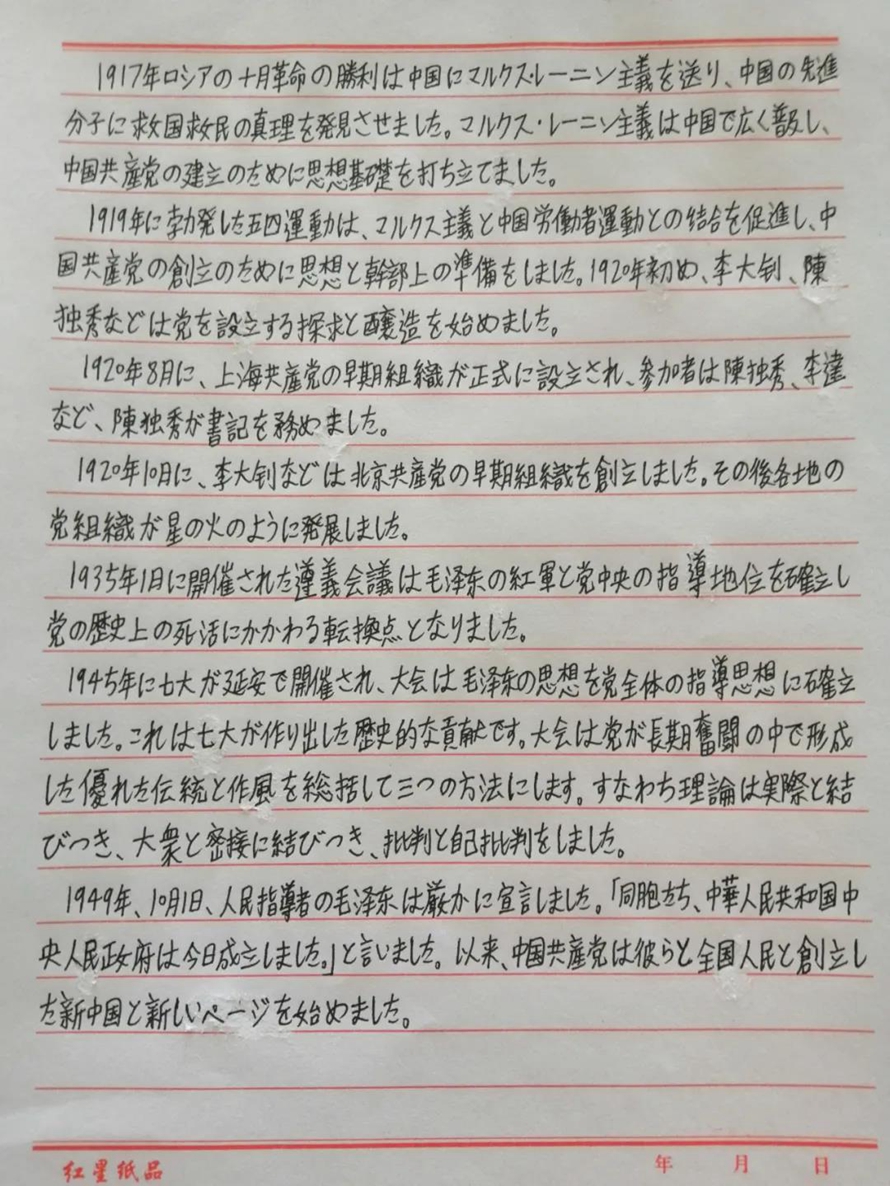 1917年ロシアの十月革命の勝利は中国にマルクス・レーニン主義を送り、中国の先進
分子に救国救民の真理を発見させました。マルクス・レーニン主義は中国で広く普及し、
中国共産党の建立のために思想基礎を打ち立てました。
1919年に勃発した五四運動は、マルクス主義と中国労働者運動との結合を促進し、中
国共産党の創立のために思想と幹部上の準備をしました。1920年初め、李大钊、陳
独秀などは党を設立する探求と醸造を始めました。
1920年8月に、上海共産党の早期組織が正式に設立され、参加者は陳独秀、李達
など、陳独秀が書記を務めました。
1920年10月に、李大钊などは北京共産党の早期組織を創立しました。その後各地の
党組織が星の火のように発展しました。
1935年1月に開催された遵義会議は毛泽东の紅軍と党中央の指導地位を確立し
党の歴史上の死活にかかわる転換点となりました。
1945年に七大が延安で開催され、大会は毛泽东の思想を党全体の指導思想に確立
しました。これは七大が作り出した歴史的な貢献です。大会は党が長期奮闘の中で形成
した優れた伝統と作風を総括して三つの方法にします。すなわち理論は実際と結
びつき、大衆と密接に結びつき、批判と自己批判をしました。
1949年、10月1日、人民指導者の毛泽东は厳かに宣言しました。「同胞たち、中華人民共和国中
央人民政府は今日成立しました。」と言いました。以来、中国共産党は彼らと全国人民と創立し
た新中国と新しいページを始めました。
红星纸品 年 月 日